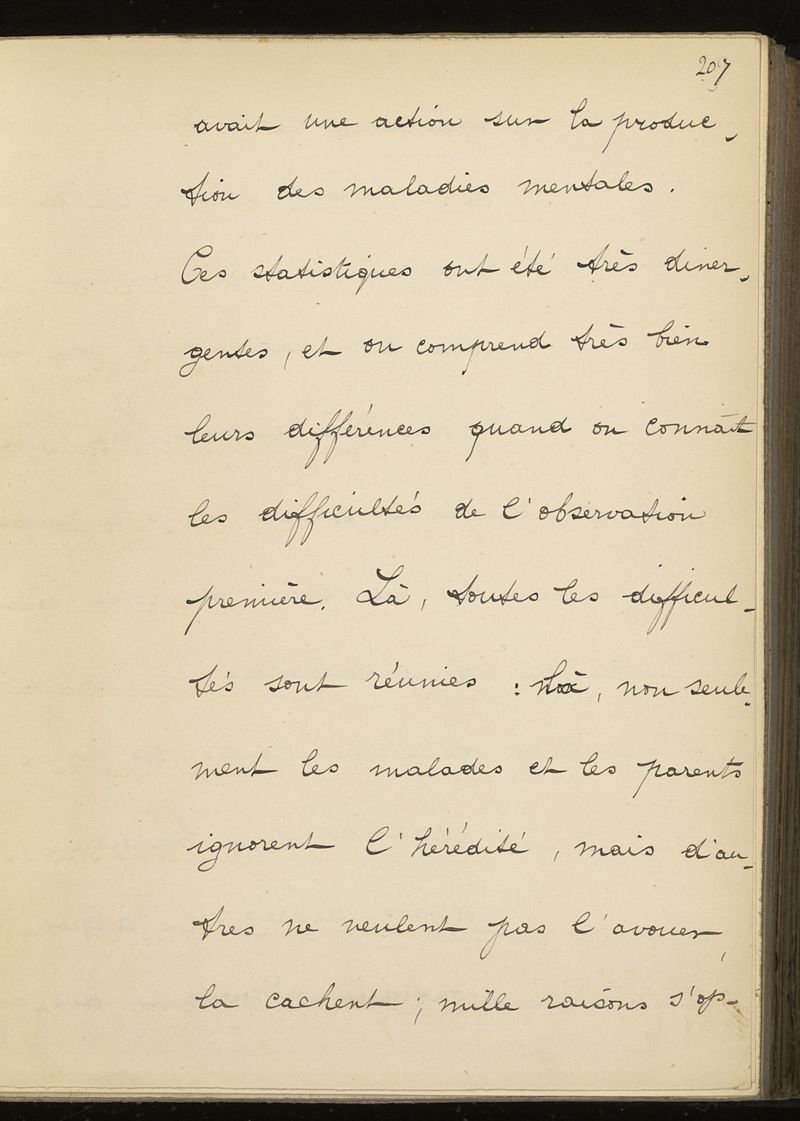 207
avait une action sur la produc-
tion des maladies mentales.
Ces statistiques ont été très diver-
gentes, et on comprend très bien
leurs différences quand on connaît
les difficultés de l'observation
première. Là, toutes les difficul-
tés sont réunies : , non seule-
ment les malades et les parents
ignorent l'hérédité, mais d'au-
tres ne veulent pas l'avouer,
la cachent ; mille raisons s'op-